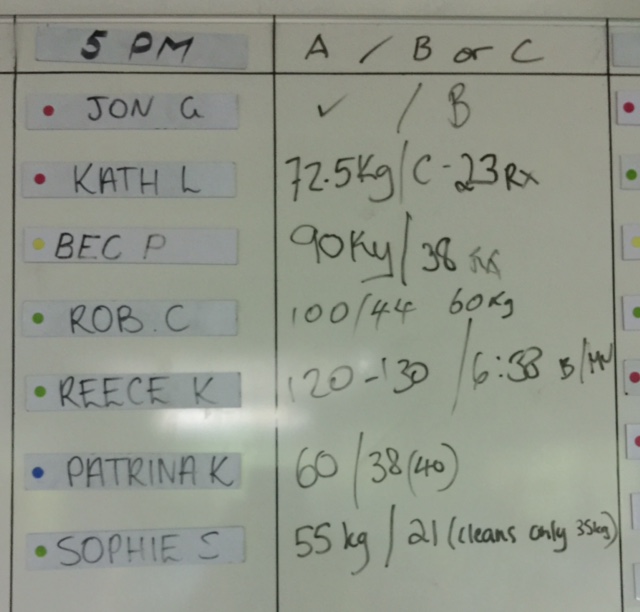 5 PM A / B or C
JON G ✓ / B
KATH L 72.5kg / C - 23 Rx
BEC P 90Kg / 38 RX
ROB. C 100/44 60kg
REECE K 120-130 / 6:58 B/
PATRINA K 60 / 38 (40)
SOPHIE S 55 kg / 21 (cleans only 35kg)